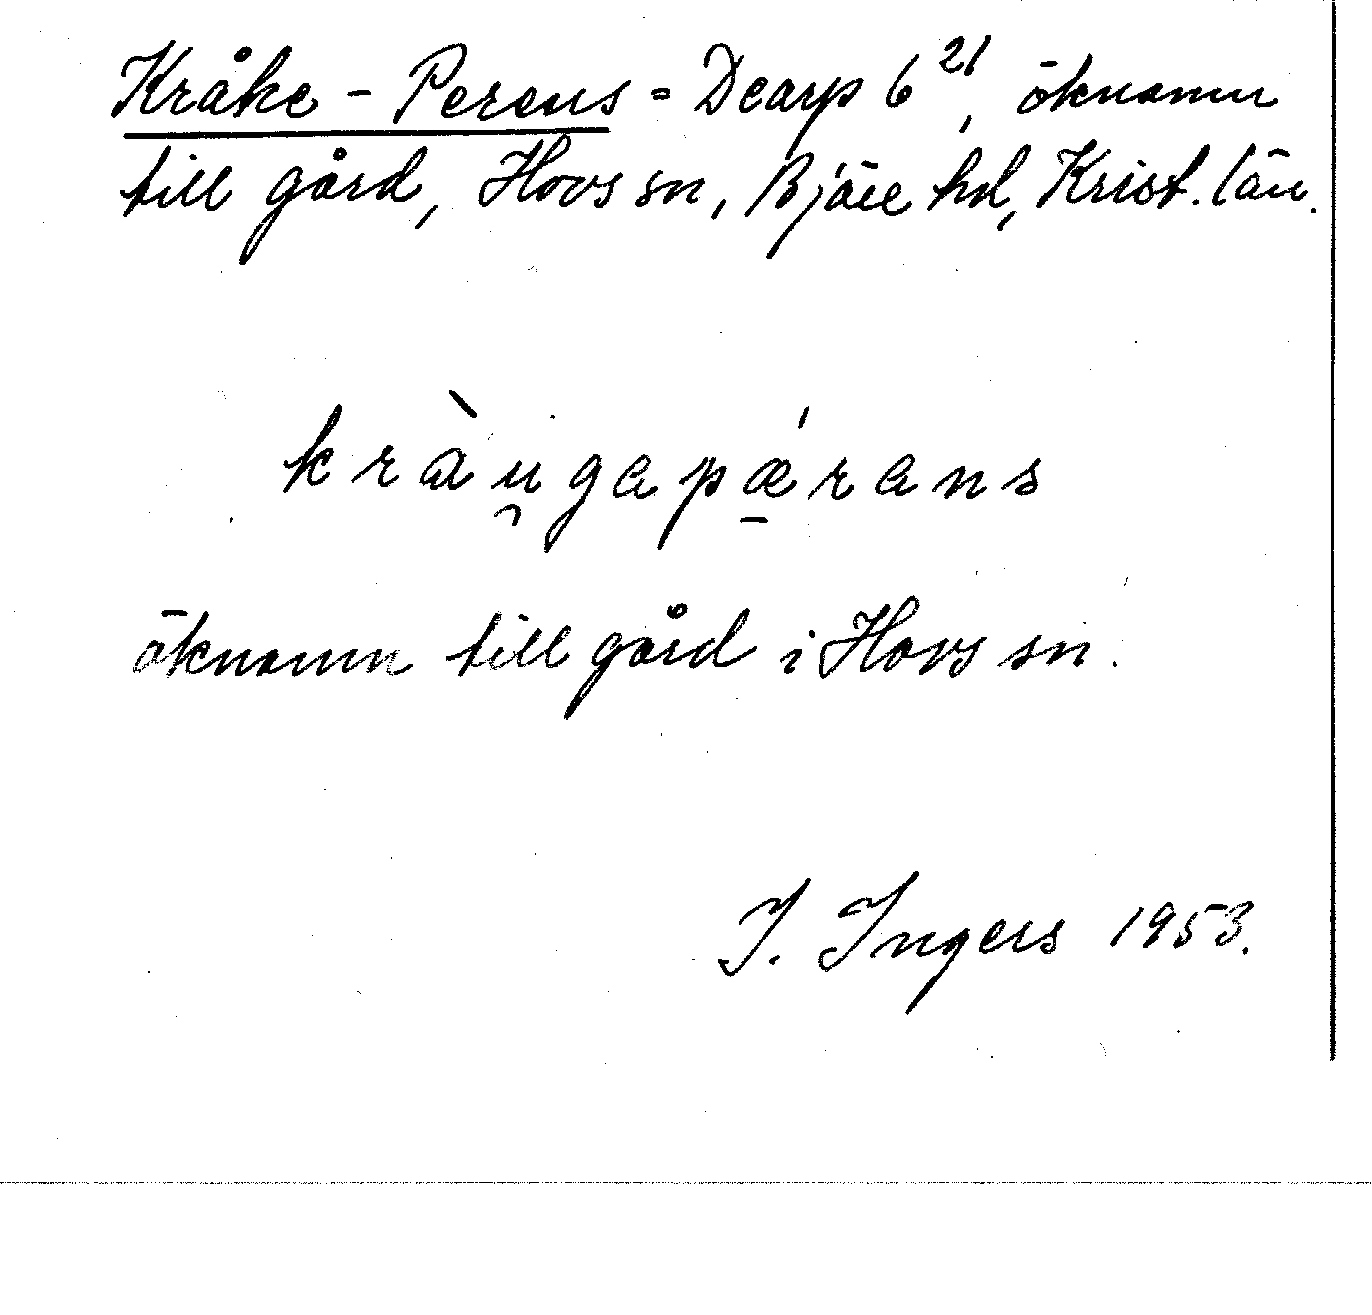 Kråke-Perens = Dearp 6²¹, öknamn
till gård, Hovs sn, Bjäre hd, Krist. län.
kràu̯gapǽ̱rans
öknamn till gård i Hovs sn.
I. Ingers 1953.